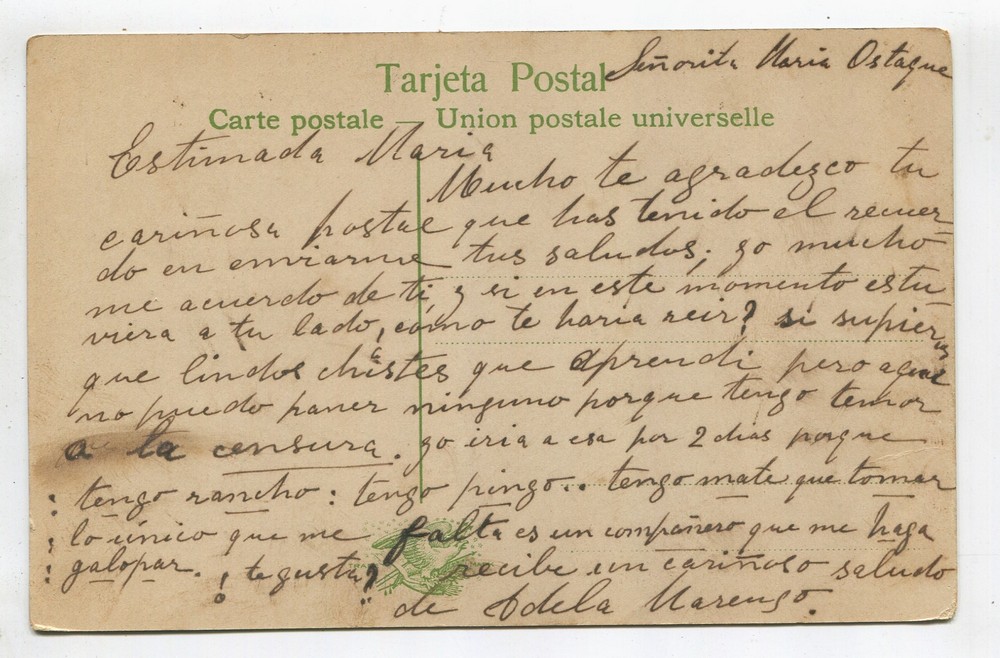 Señorita Maria Ostaque
Tarjeta Postal
Carte postale — Union postale universelle
Estimada Maria
Mucho te agradezco tu
cariñosa postal que has tenido el recuer-
do en enviarme tus saludos; yo mucho
me acuerdo de ti, y si en este momento estu
viera a tu lado, como te haria reir? si supieras
que lindos chistes que aprendi pero aqui
no puedo poner ninguno porque tengo temor
a la censura. yo iria a esa por 2 dias porque
tengo rancho: tengo pingo.. tengo mate que tomar
lo único que me falta es un compañero que me haga
galopar. ¡te gusta? recibe un cariñoso saludo
de Adela Marengo.